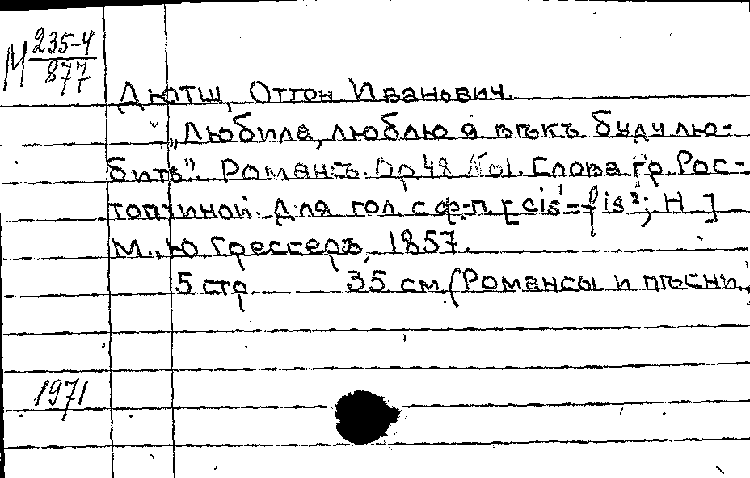 М 235-4
877
Дютш, Оттон Иванович.
„Любила, люблю я вѣкъ буду лю-
бить". Романсъ. Op 48 No1. Слова гр. Рос-
топчиной. Для гол. с ф-п. [cis¹-fis²; H ]
М., Ю Грессеръ, 1857.
5 стр 35 см (Романсы и пѣсни,
1971